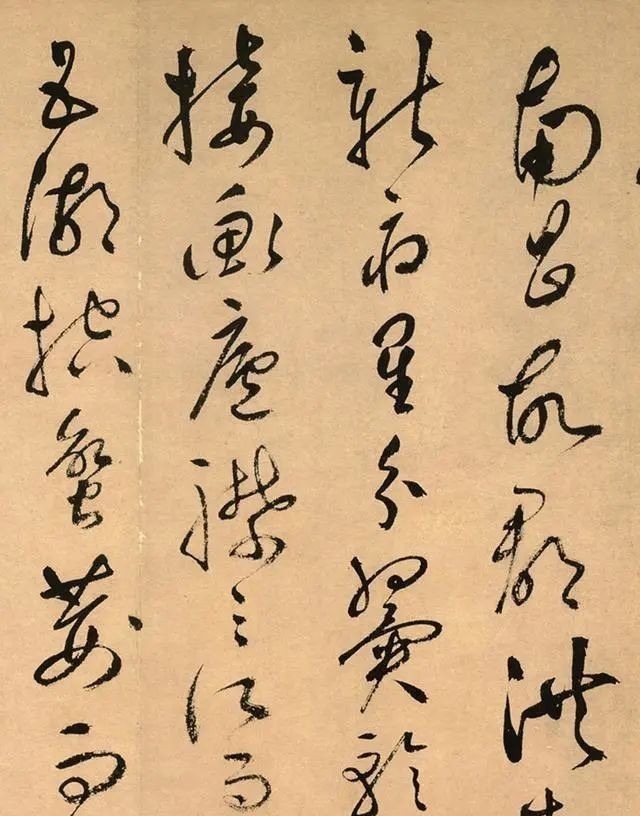 南昌故郡洪
新府星分翼軫
接衡廬襟三江而
五湖控蠻荊而